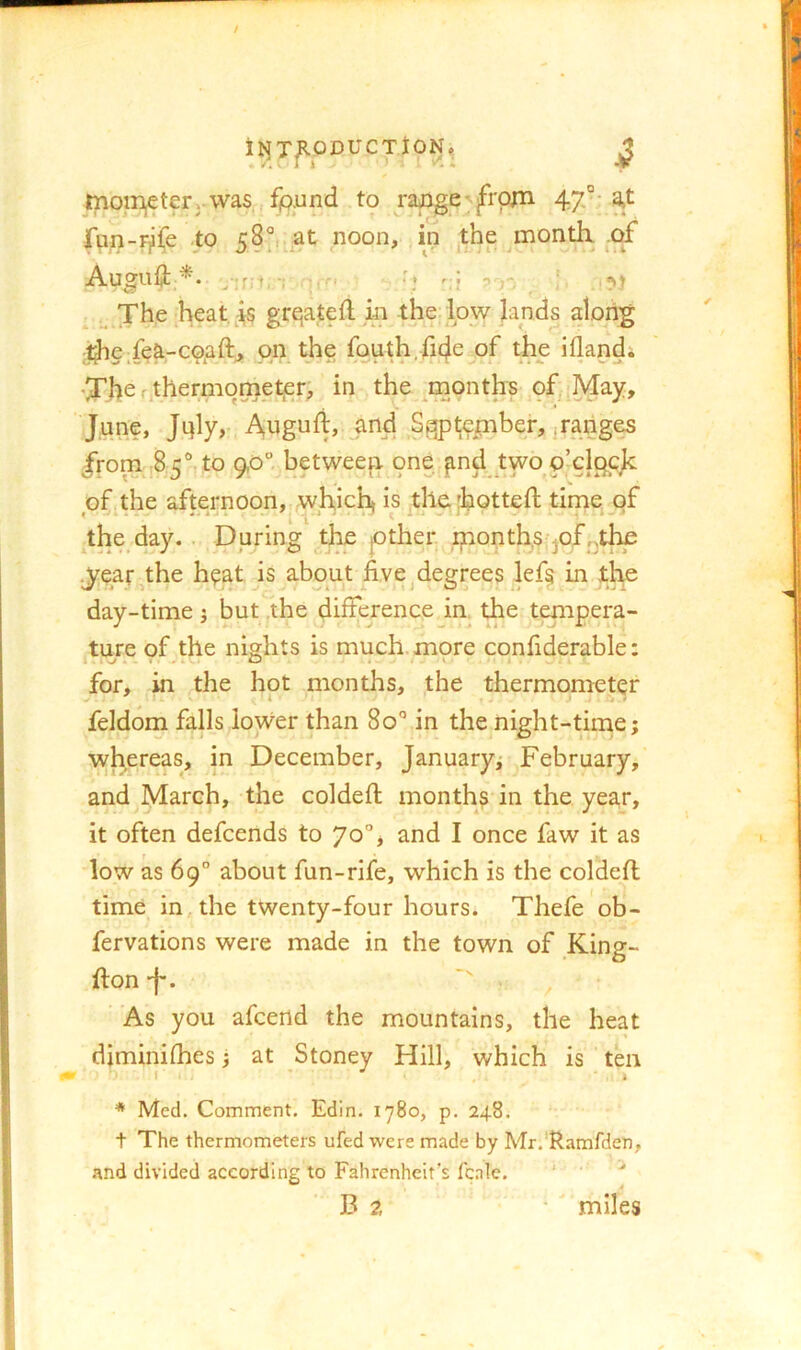 INTRODUCTION. 3
mometer, was found to range from 47° at
ſun-riſe to 58° at noon, in the month of
Auguſt *.
The heat is greateſt in the low lands along
the ſea-coaſt, on the ſouth ſide of the iſland.
The thermometer, in the months of May,
June, July, Auguſt, and September, ranges
from 85° to 90° between one and two o'clock
of the afternoon, which is the hotteſt time of
the day. During the other months of the
year the heat is about five degrees leſs in the
day-time; but the difference in the tempera-
ture of the nights is much more conſiderable:
for, in the hot months, the thermometer
ſeldom falls lower than 80° in the night-time;
whereas, in December, January, February,
and March, the coldeſt months in the year,
it often deſcends to 70°, and I once ſaw it as
low as 69° about ſun-riſe, which is the coldeſt
time in the twenty-four hours. Theſe ob-
ſervations were made in the town of King-
ſton †.
As you aſcend the mountains, the heat
diminiſhes; at Stoney Hill, which is ten
* Med. Comment. Edin. 1780, p. 248.
† The thermometers uſed were made by Mr. Ramſden,
and divided according to Fahrenheit's ſcale.
B 2 miles